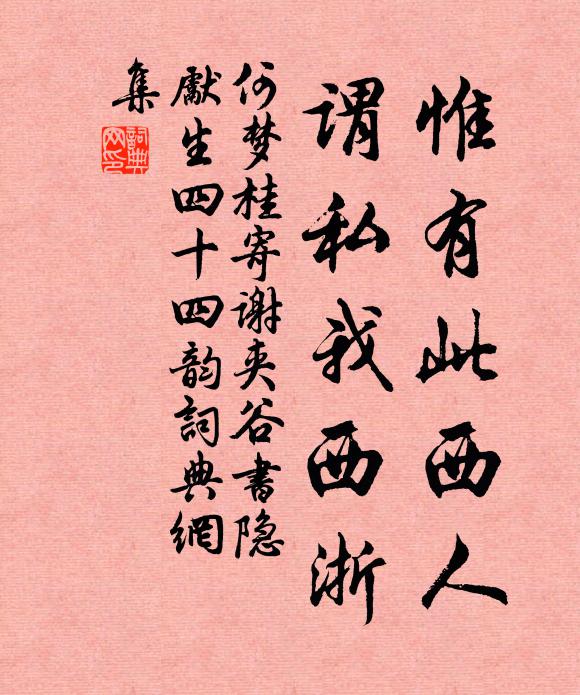 惟有此西人
谓私我西浙
何梦桂寄谢夹谷書隐
獻生四十四韵詞典網
集
詞典網印